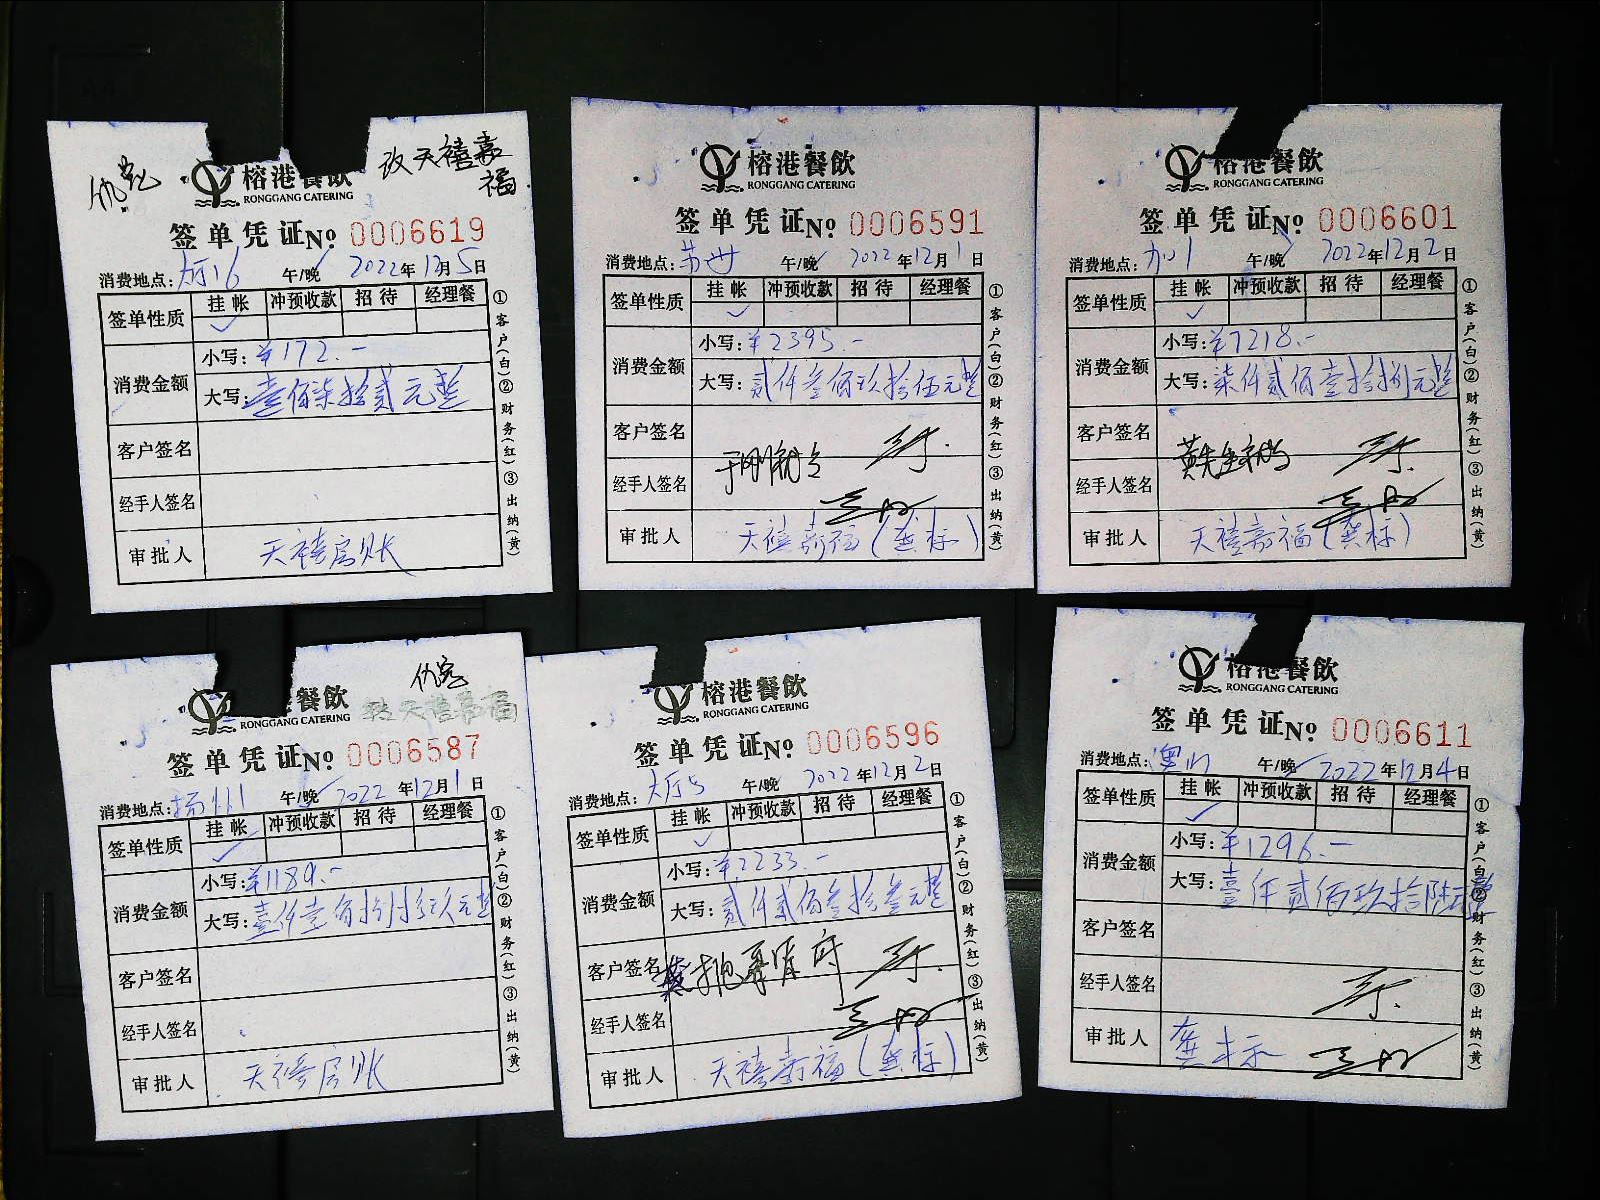 玫天禧嘉
福
榕港餐飲
RONGGANG CATERING
签单凭证№ 0006619
消费地点: 大厅16 午/晚 2022年12月5日
签单性质 挂帐 冲预收款 招待 经理餐
消费金额 小写: ¥172.-
大写: 壹佰柒拾贰元整
客户签名
经手人签名
审批人 天禧房账
①客户(白)②财务(红)③出纳(黄)
榕港餐飲
RONGGANG CATERING
签单凭证№ 0006591
消费地点: 苏州 午/晚 2022年12月1日
签单性质 挂帐 冲预收款 招待 经理餐
消费金额 小写: ¥2395.-
大写: 贰仟叁佰玖拾伍元整
客户签名
经手人签名
审批人 天禧嘉福(龚标)
①客户(白)②财务(红)③出纳(黄)
榕港餐飲
RONGGANG CATERING
签单凭证№ 0006601
消费地点: 加1 午/晚 2022年12月2日
签单性质 挂帐 冲预收款 招待 经理餐
消费金额 小写: ¥7218.-
大写: 柒仟贰佰壹拾捌元整
客户签名
经手人签名
审批人 天禧嘉福(龚标)
①客户(白)②财务(红)③出纳(黄)
仇总
榕港餐飲
RONGGANG CATERING
签单凭证№ 0006587
消费地点: 扬州1 午/晚 2022年12月1日
签单性质 挂帐 冲预收款 招待 经理餐
消费金额 小写: ¥1189.-
大写: 壹仟壹佰捌拾玖元整
客户签名
经手人签名
审批人 天禧房账
①客户(白)②财务(红)③出纳(黄)
榕港餐飲
RONGGANG CATERING
签单凭证№ 0006596
消费地点: 大厅5 午/晚 2022年12月2日
签单性质 挂帐 冲预收款 招待 经理餐
消费金额 小写: ¥2233.-
大写: 贰仟贰佰叁拾叁元整
客户签名
经手人签名
审批人 天禧嘉福(龚标)
①客户(白)②财务(红)③出纳(黄)
榕港餐飲
RONGGANG CATERING
签单凭证№ 0006611
消费地点: 澳门 午/晚 2022年12月4日
签单性质 挂帐 冲预收款 招待 经理餐
消费金额 小写: ¥1296.-
大写: 壹仟贰佰玖拾陆元整
客户签名
经手人签名
审批人 龚标
①客户(白)②财务(红)③出纳(黄)